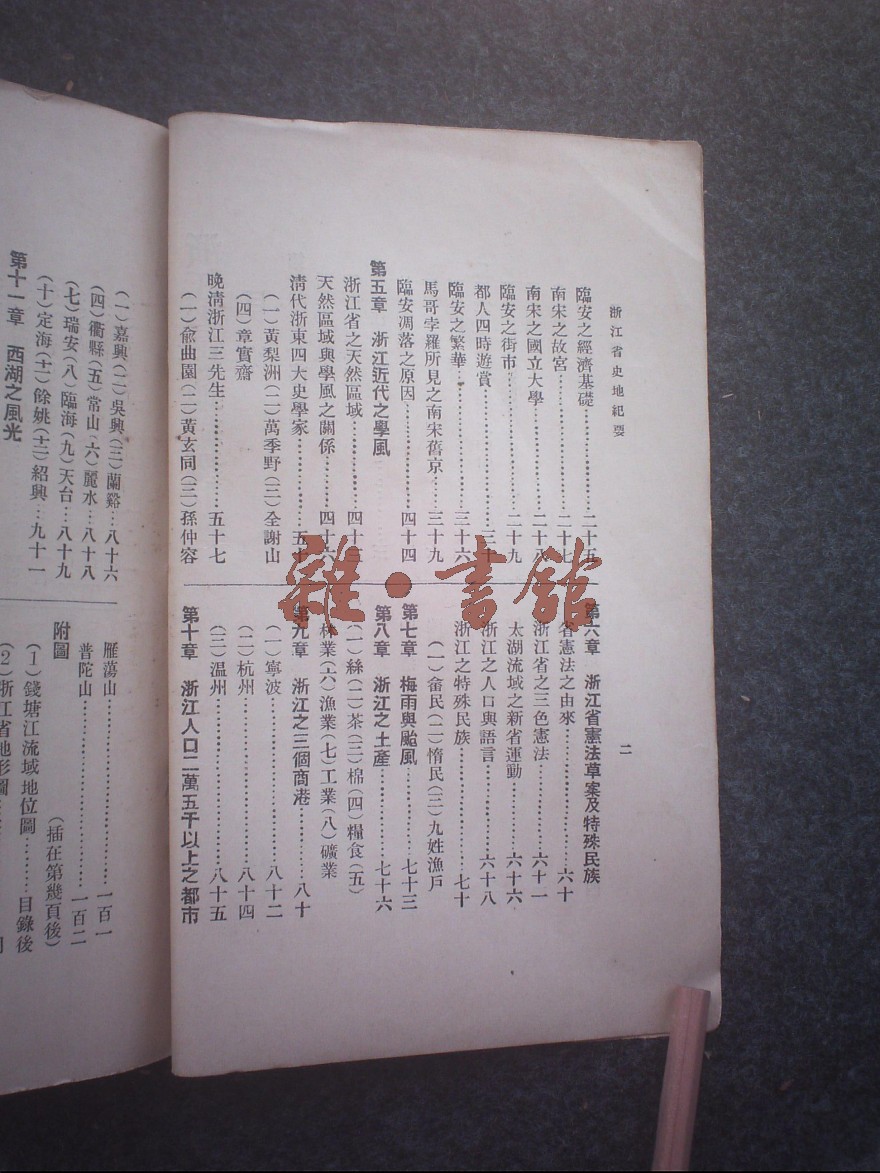 浙江省史地紀要
二
臨安之經濟基礎………………二十五
南宋之故宮………………二十七
南宋之國立大學………………二十八
臨安之街市………………二十九
都人四時遊賞………………三十
臨安之繁華………………三十六
馬哥孛羅所見之南宋舊京………三十九
臨安凋落之原因………………四十四
第五章　浙江近代之學風
浙江省之天然區域………………四十三
天然區域與學風之關係………四十六
清代浙東四大史學家………………五十
（一）黃梨洲（二）萬季野（三）全謝山
（四）章實齋
晚清浙江三先生………………五十七
（一）俞曲園（二）黃玄同（三）孫仲容
第六章　浙江省憲法草案及特殊民族
省憲法之由來………………六十
浙江省之三色憲法………………六十一
太湖流域之新省運動………………六十六
浙江之人口與語言………………六十八
浙江之特殊民族………………七十
（一）畬民（二）惰民（三）九姓漁戶
第七章　梅雨與颱風………………七十三
第八章　浙江之土產………………七十六
（一）絲（二）茶（三）棉（四）糧食（五）
林業（六）漁業（七）工業（八）礦業
第九章　浙江之三個商港………八十
（一）寧波………………八十二
（二）杭州………………八十四
（三）溫州………………八十五
第十章　浙江人口二萬五千以上之都市
（一）嘉興（二）吳興（三）蘭谿…八十六
（四）衢縣（五）常山（六）麗水…八十八
（七）瑞安（八）臨海（九）天台…八十九
（十）定海（十一）餘姚（十二）紹興…九十一
第十一章　西湖之風光
雁蕩山………………一百一
普陀山………………一百二
附圖　（插在第幾頁後）
（1）錢塘江流域地位圖………目錄後
（2）浙江省地形圖
雜·書館